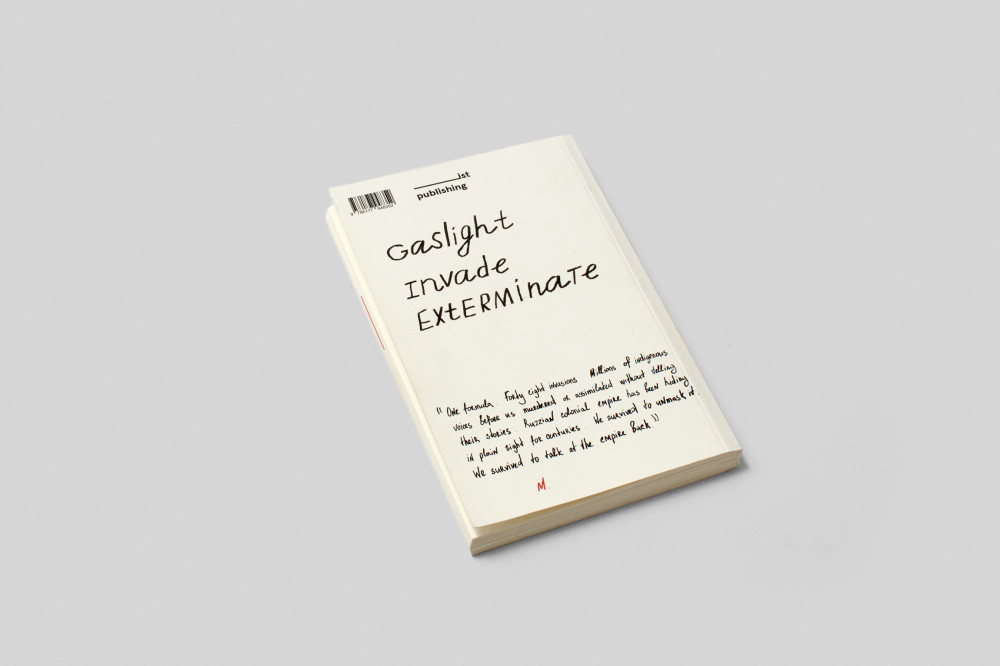 ist
publishing
Gaslight
Invade
EXtERMInaTe
"One formula Forty eight invasions Millions of indigenous
voices before us murdered or assimilated without telling
their stories Ruzzian colonial empire has been hiding
in plain sight for centuries We survived to unmask it
We survived to talk at the empire back"
M.